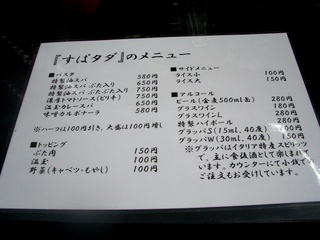 『すぱタダ』のメニュー
■パスタ
特製油スパ 580円
特製油スパ ぶた入り 650円
特製油スパ ぶたぶた入り 750円
濃厚トマトソース(ピリ辛) 750円
温玉カレースパ 680円
味噌カルボナーラ 580円
※ハーフは100円引き、大盛は100円増し
■トッピング
ぶた肉 150円
温玉 100円
野菜(キャベツ・もやし) 100円
■サイドメニュー
ライス小 100円
ライス大 150円
■アルコール
ビール(金麦500ml缶) 280円
グラスワイン 180円
グラスワインL 280円
特製ハイボール 280円
グラッパS(15ml、40度) 100円
グラッパW(30ml、40度) 150円
※グラッパはイタリア特産スピリッツで、主に食後酒として楽しまれています。カウンターにて小銭でご注文もお受けしています。